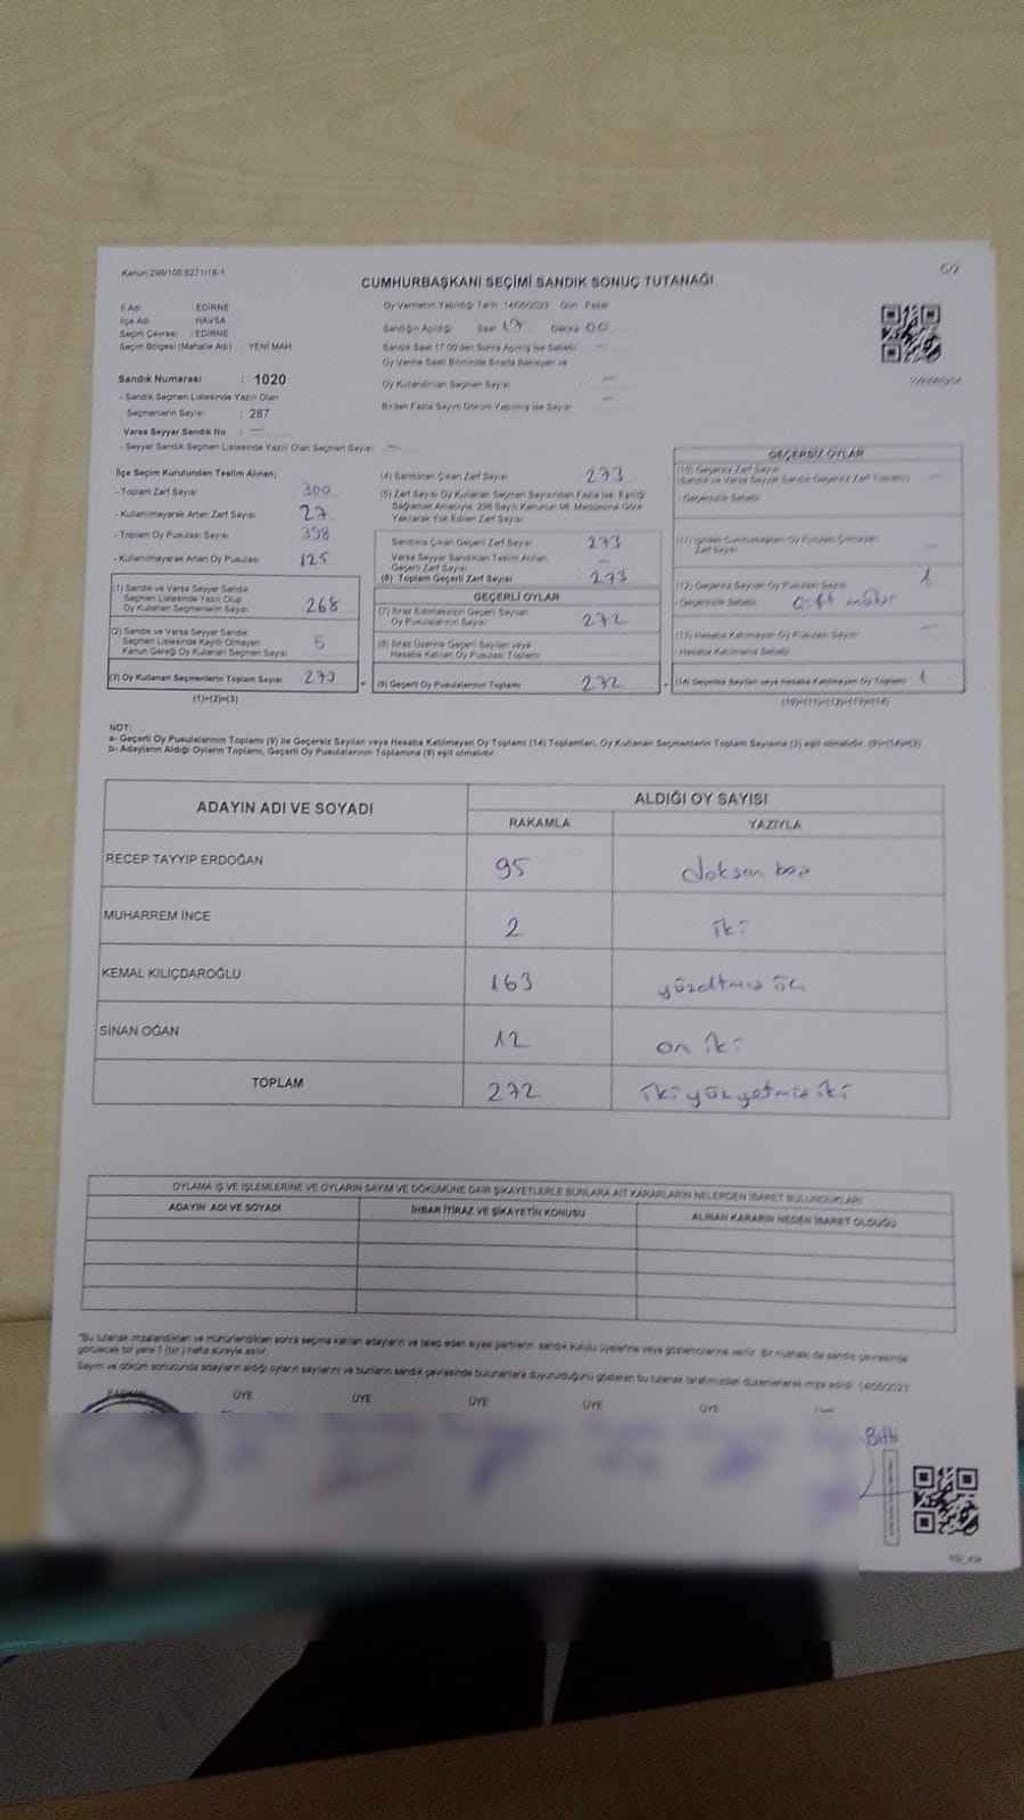 Kanun:298/105,6271/18-1
CUMHURBAŞKANI SEÇİMİ SANDIK SONUÇ TUTANAĞI
İl Adı : EDİRNE
İlçe Adı : HAVSA
Seçim Çevresi : EDİRNE
Seçim Bölgesi (Mahalle Adı) : YENİ MAH
Sandık Numarası : 1020
- Sandık Seçmen Listesinde Yazılı Olan
Seçmenlerin Sayısı : 287
Varsa Seyyar Sandık No : —
- Seyyar Sandık Seçmen Listesinde Yazılı Olan Seçmen Sayısı : —
Oy Vermenin Yapıldığı Tarih : 14/05/2023 Gün : Pazar
Sandığın Açıldığı Saat 17 Dakika 00
Sandık Saat 17:00'den Sonra Açılmış İse Sebebi —
Oy Verme Saati Bitiminde Sırada Bekleyen ve
Oy Kullandırılan Seçmen Sayısı —
Birden Fazla Sayım Döküm Yapılmış İse Sayısı —
İlçe Seçim Kurulundan Teslim Alınan;
- Toplam Zarf Sayısı 300
- Kullanılmayarak Artan Zarf Sayısı 27
- Toplam Oy Pusulası Sayısı 398
- Kullanılmayarak Artan Oy Pusulası 125
(1) Sandık ve Varsa Seyyar Sandık
Seçmen Listesinde Yazılı Olup
Oy Kullanan Seçmenlerin Sayısı 268
(2) Sandık ve Varsa Seyyar Sandık
Seçmen Listesinde Kayıtlı Olmayan
Kanun Gereği Oy Kullanan Seçmen Sayısı 5
(3) Oy Kullanan Seçmenlerin Toplam Sayısı 273
(1)+(2)=(3)
(4) Sandıktan Çıkan Zarf Sayısı 273
(5) Zarf Sayısı Oy Kullanan Seçmen Sayısından Fazla İse, Eşitliği
Sağlamak Amacıyla, 298 Sayılı Kanunun 98. Maddesine Göre
Yakılarak Yok Edilen Zarf Sayısı
Sandıkta Çıkan Geçerli Zarf Sayısı 273
Varsa Seyyar Sandıktan Teslim Alınan
Geçerli Zarf Sayısı —
(6) Toplam Geçerli Zarf Sayısı 273
GEÇERLİ OYLAR
(7) İtiraz Edilmeksizin Geçerli Sayılan
Oy Pusulalarının Sayısı 272
(8) İtiraz Üzerine Geçerli Sayılan veya
Hesaba Katılan Oy Pusulası Toplamı
(9) Geçerli Oy Pusulalarının Toplamı 272
GEÇERSİZ OYLAR
(10) Geçersiz Zarf Sayısı
- Geçersizlik Sebebi
Zarf Sayısı —
(12) Geçersiz Sayılan Oy Pusulası Sayısı 1
- Geçersizlik Sebebi Çift mühür
(13) Hesaba Katılmayan Oy Pusulası Sayısı —
- Hesaba Katılmama Sebebi
(14) Geçersiz Sayılan veya Hesaba Katılmayan Oy Toplamı 1
(10)+(11)+(12)+(13)=(14)
NOT:
a- Geçerli Oy Pusulalarının Toplamı (9) ile Geçersiz Sayılan veya Hesaba Katılmayan Oy Toplamı (14) Toplamları, Oy Kullanan Seçmenlerin Toplam Sayısına (3) eşit olmalıdır. (9)+(14)=(3)
b- Adayların Aldığı Oyların Toplamı, Geçerli Oy Pusulalarının Toplamına (9) eşit olmalıdır.
ADAYIN ADI VE SOYADI
ALDIĞI OY SAYISI
RAKAMLA YAZIYLA
RECEP TAYYIP ERDOĞAN 95 doksan beş
MUHARREM İNCE 2 iki
KEMAL KILIÇDAROĞLU 163 yüzaltmış üç
SİNAN OĞAN 12 on iki
TOPLAM 272 iki yüz yetmiş iki
OYLAMA İŞ VE İŞLEMLERİNE VE OYLARIN SAYIM VE DÖKÜMÜNE DAİR ŞİKAYETLERLE BUNLARA AİT KARARLARIN NELERDEN İBARET BULUNDUKLARI
ADAYIN ADI VE SOYADI İHBAR İTİRAZ VE ŞİKAYETİN KONUSU ALINAN KARARIN NEDEN İBARET OLDUĞU
"Bu tutanak imzalandıktan ve mühürlendikten sonra seçime katılan adayların ve talep eden siyasi partilerin, sandık kurulu üyelerine veya gözlemcilerine verilir. Bir nüshası da sandık çevresinde
görülecek bir yere 1 (bir) hafta süreyle asılır.
Sayım ve döküm sonucunda adayların aldığı oyların sayılarını ve bunların sandık çevresinde bulunanlara duyurulduğunu gösteren bu tutanak tarafımızdan düzenlenerek imza edildi. 14/05/2023
BAŞKAN ÜYE ÜYE ÜYE ÜYE ÜYE